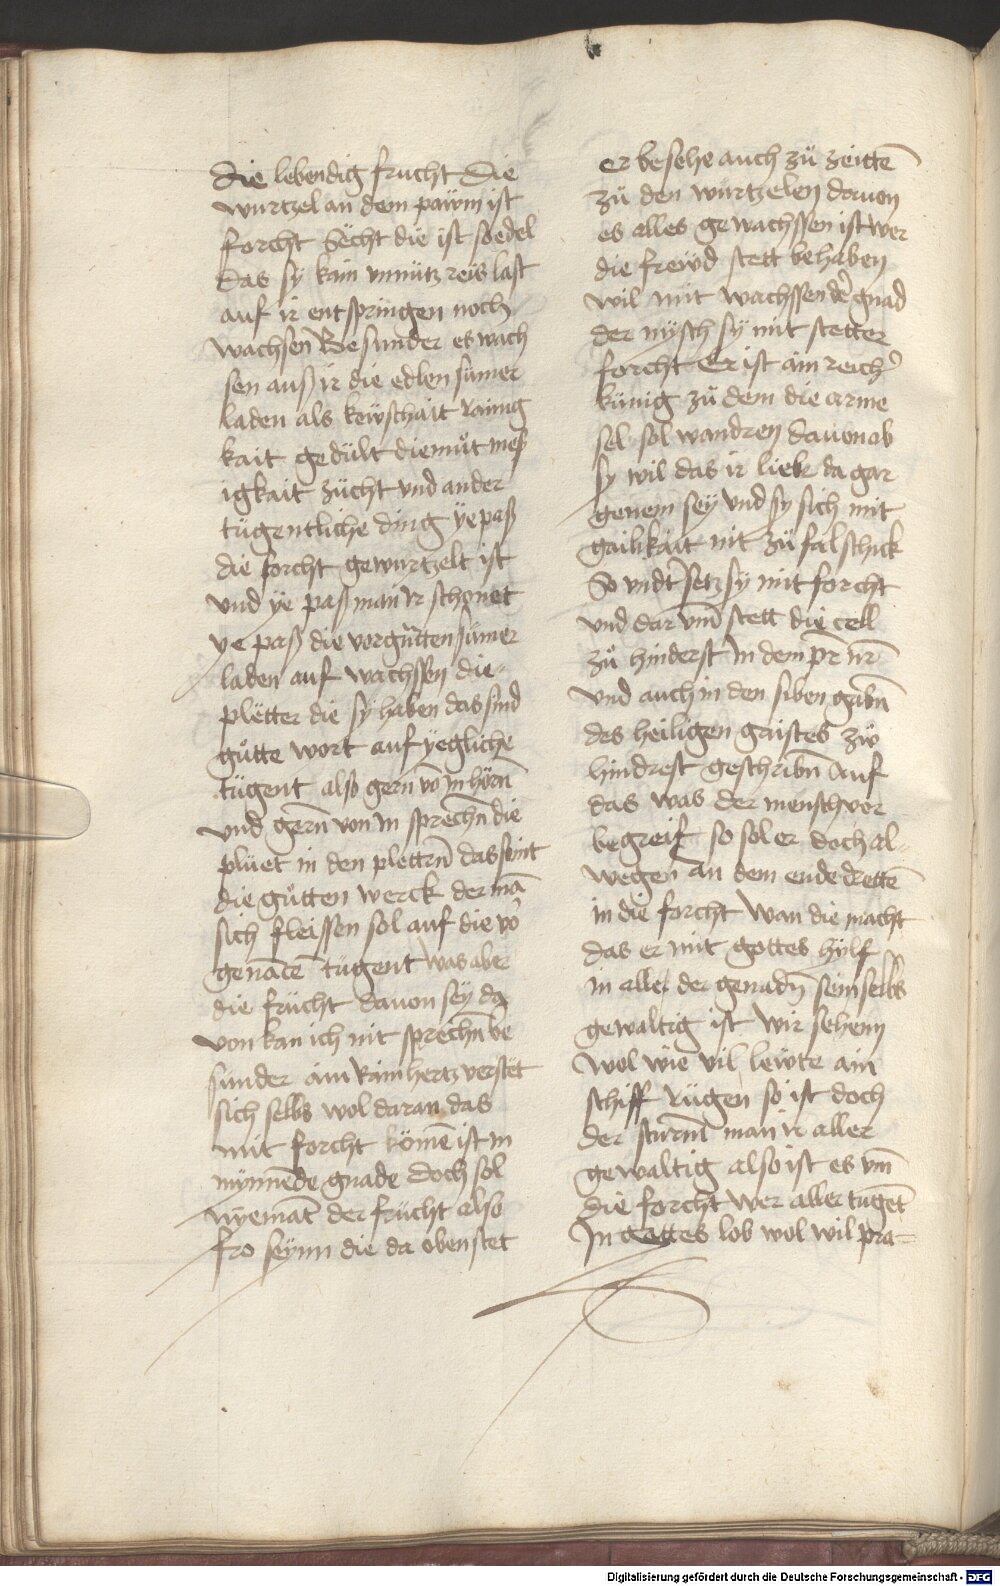 die lebendig frucht Die
wurtzel an dem pawm ist
forcht Secht die ist so edel
das sy kain vnnütz reis last
auf ir entspringen noch
wachsen Besunder es wach
sen auß ir die edlen sumer
laden als kewschait rainig
kait gedult diemůt meß
igkait zücht vnd ander
tugentliche ding ye paß
die forcht gewurtzelt ist
vnd ye paß man ir schonet
ye paß die vorgůtten sumer
laden auf wachssen die
pletter die sy haben das sind
gůtte wort auf yegliche
tugent also gern võ in hörñ
vnd gerñ von in sprechñ die
plüet in den plettrñ das seint
die gůtten werck der mã
sich fleissen sol auf die vo
genãtẽ tugent Was aber
die frücht dauon sey da
von kan ich nit sprechñ be
sunder ain rain hertz verstet
sich selbs wol daran das
mit forcht kömẽ ist in
mynnẽde gnade doch sol
nyemãt der frücht also
fro seynn die da oben stet
er besehe auch zů zeittẽ
zů den wurtzelen dauon
es alles gewachssen ist wer
die frewd stett behaben
wil mit wachssender gnad
der mysch sy mit stetter
forcht Er ist ain reicher
künig zů dem die arme
sel sol wandren dauon ob
sy wil das ir liebe da gar
genem sey vnd sy sich mit
gailikait nit zů fal schick
So vndersetz sy mit forcht
vnd dar vm̃ stett die cell
zů hinderst in dem pr̃ nr̃
vnd auch in den siben gabñ
des heiligen gaistes zů
hindrest geschribñ Auf
das was der mensch ver
begreif so sol er doch al-
wegen an dem ende trettẽ
in die forcht Wan die macht
das er mit gottes hylf
in aller der genadñ sein selbs
gewaltig ist Wir sehenn
wol wie vil lewte ain
schiff rügen so ist doch
der sturm̃ man ir aller
gewaltig also ist es vm̃
die forcht wer aller tugẽt
In gottes lob wol wil pra-
Digitalisierung gefördert durch die Deutsche Forschungsgemeinschaft - DFG